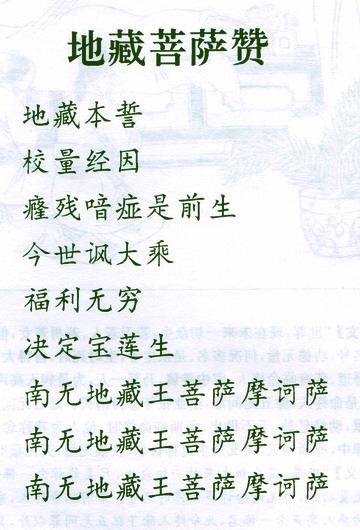 地藏菩萨赞
地藏本誓
校量经因
癃残喑痖是前生
今世讽大乘
福利无穷
决定宝莲生
南无地藏王菩萨摩诃萨
南无地藏王菩萨摩诃萨
南无地藏王菩萨摩诃萨